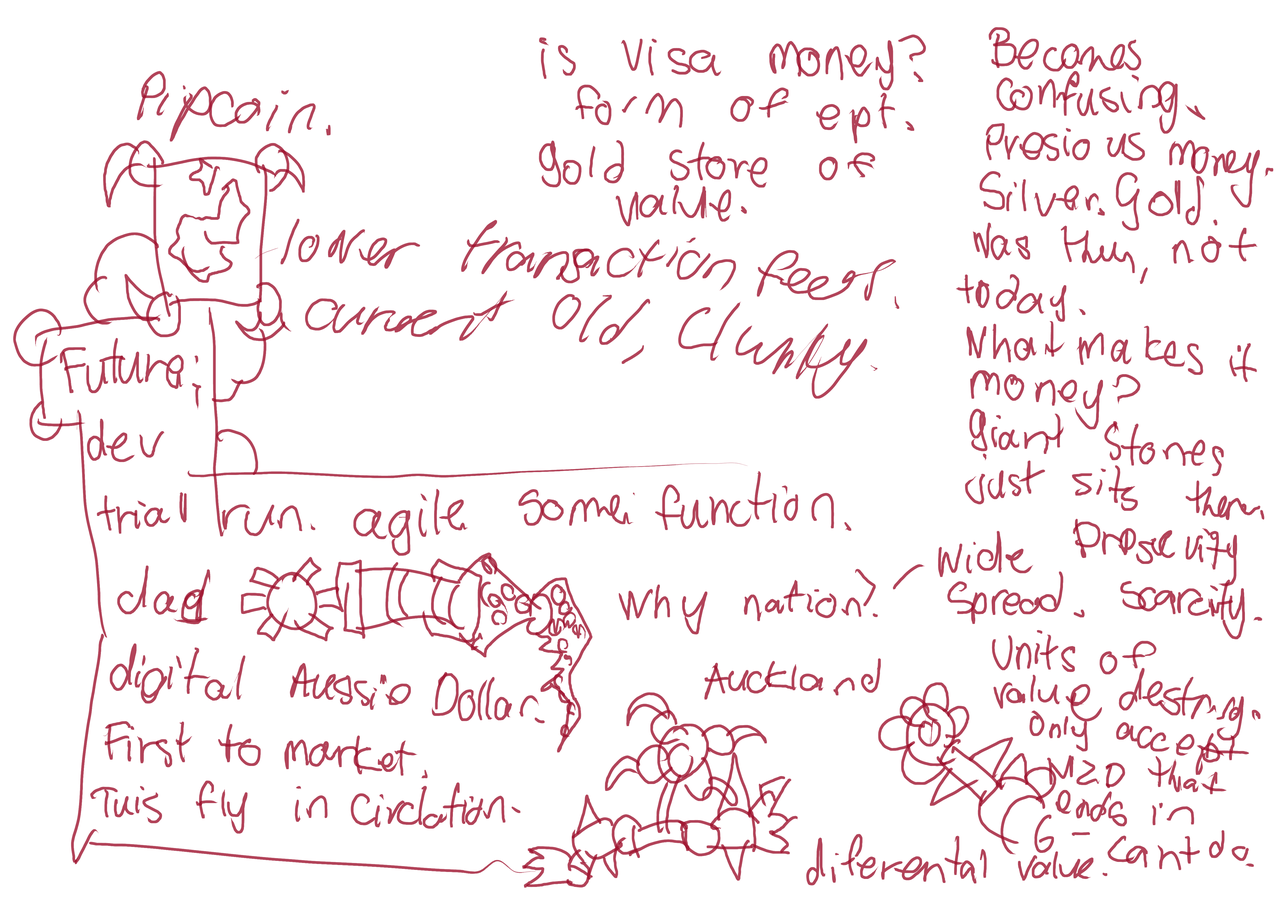 Pipcoin.
is Visa money?
form of ept.
gold store of
value.
lower transaction fees.
current old, Clunky.
Future:
dev
trial run. agile some function.
dad
digital Aussio Dollar.
First to market.
Tuis fly in Circlation.
why nation?
Auckland
Becomes
confusing.
Presious money.
Silver. Gold.
was then, not
today.
What makes it
money?
giant stones
just sits there.
wide
spread. scarcity.
Units of
value destroy.
only accept
NZD that
ends in
6 -
diferental value. cant do.